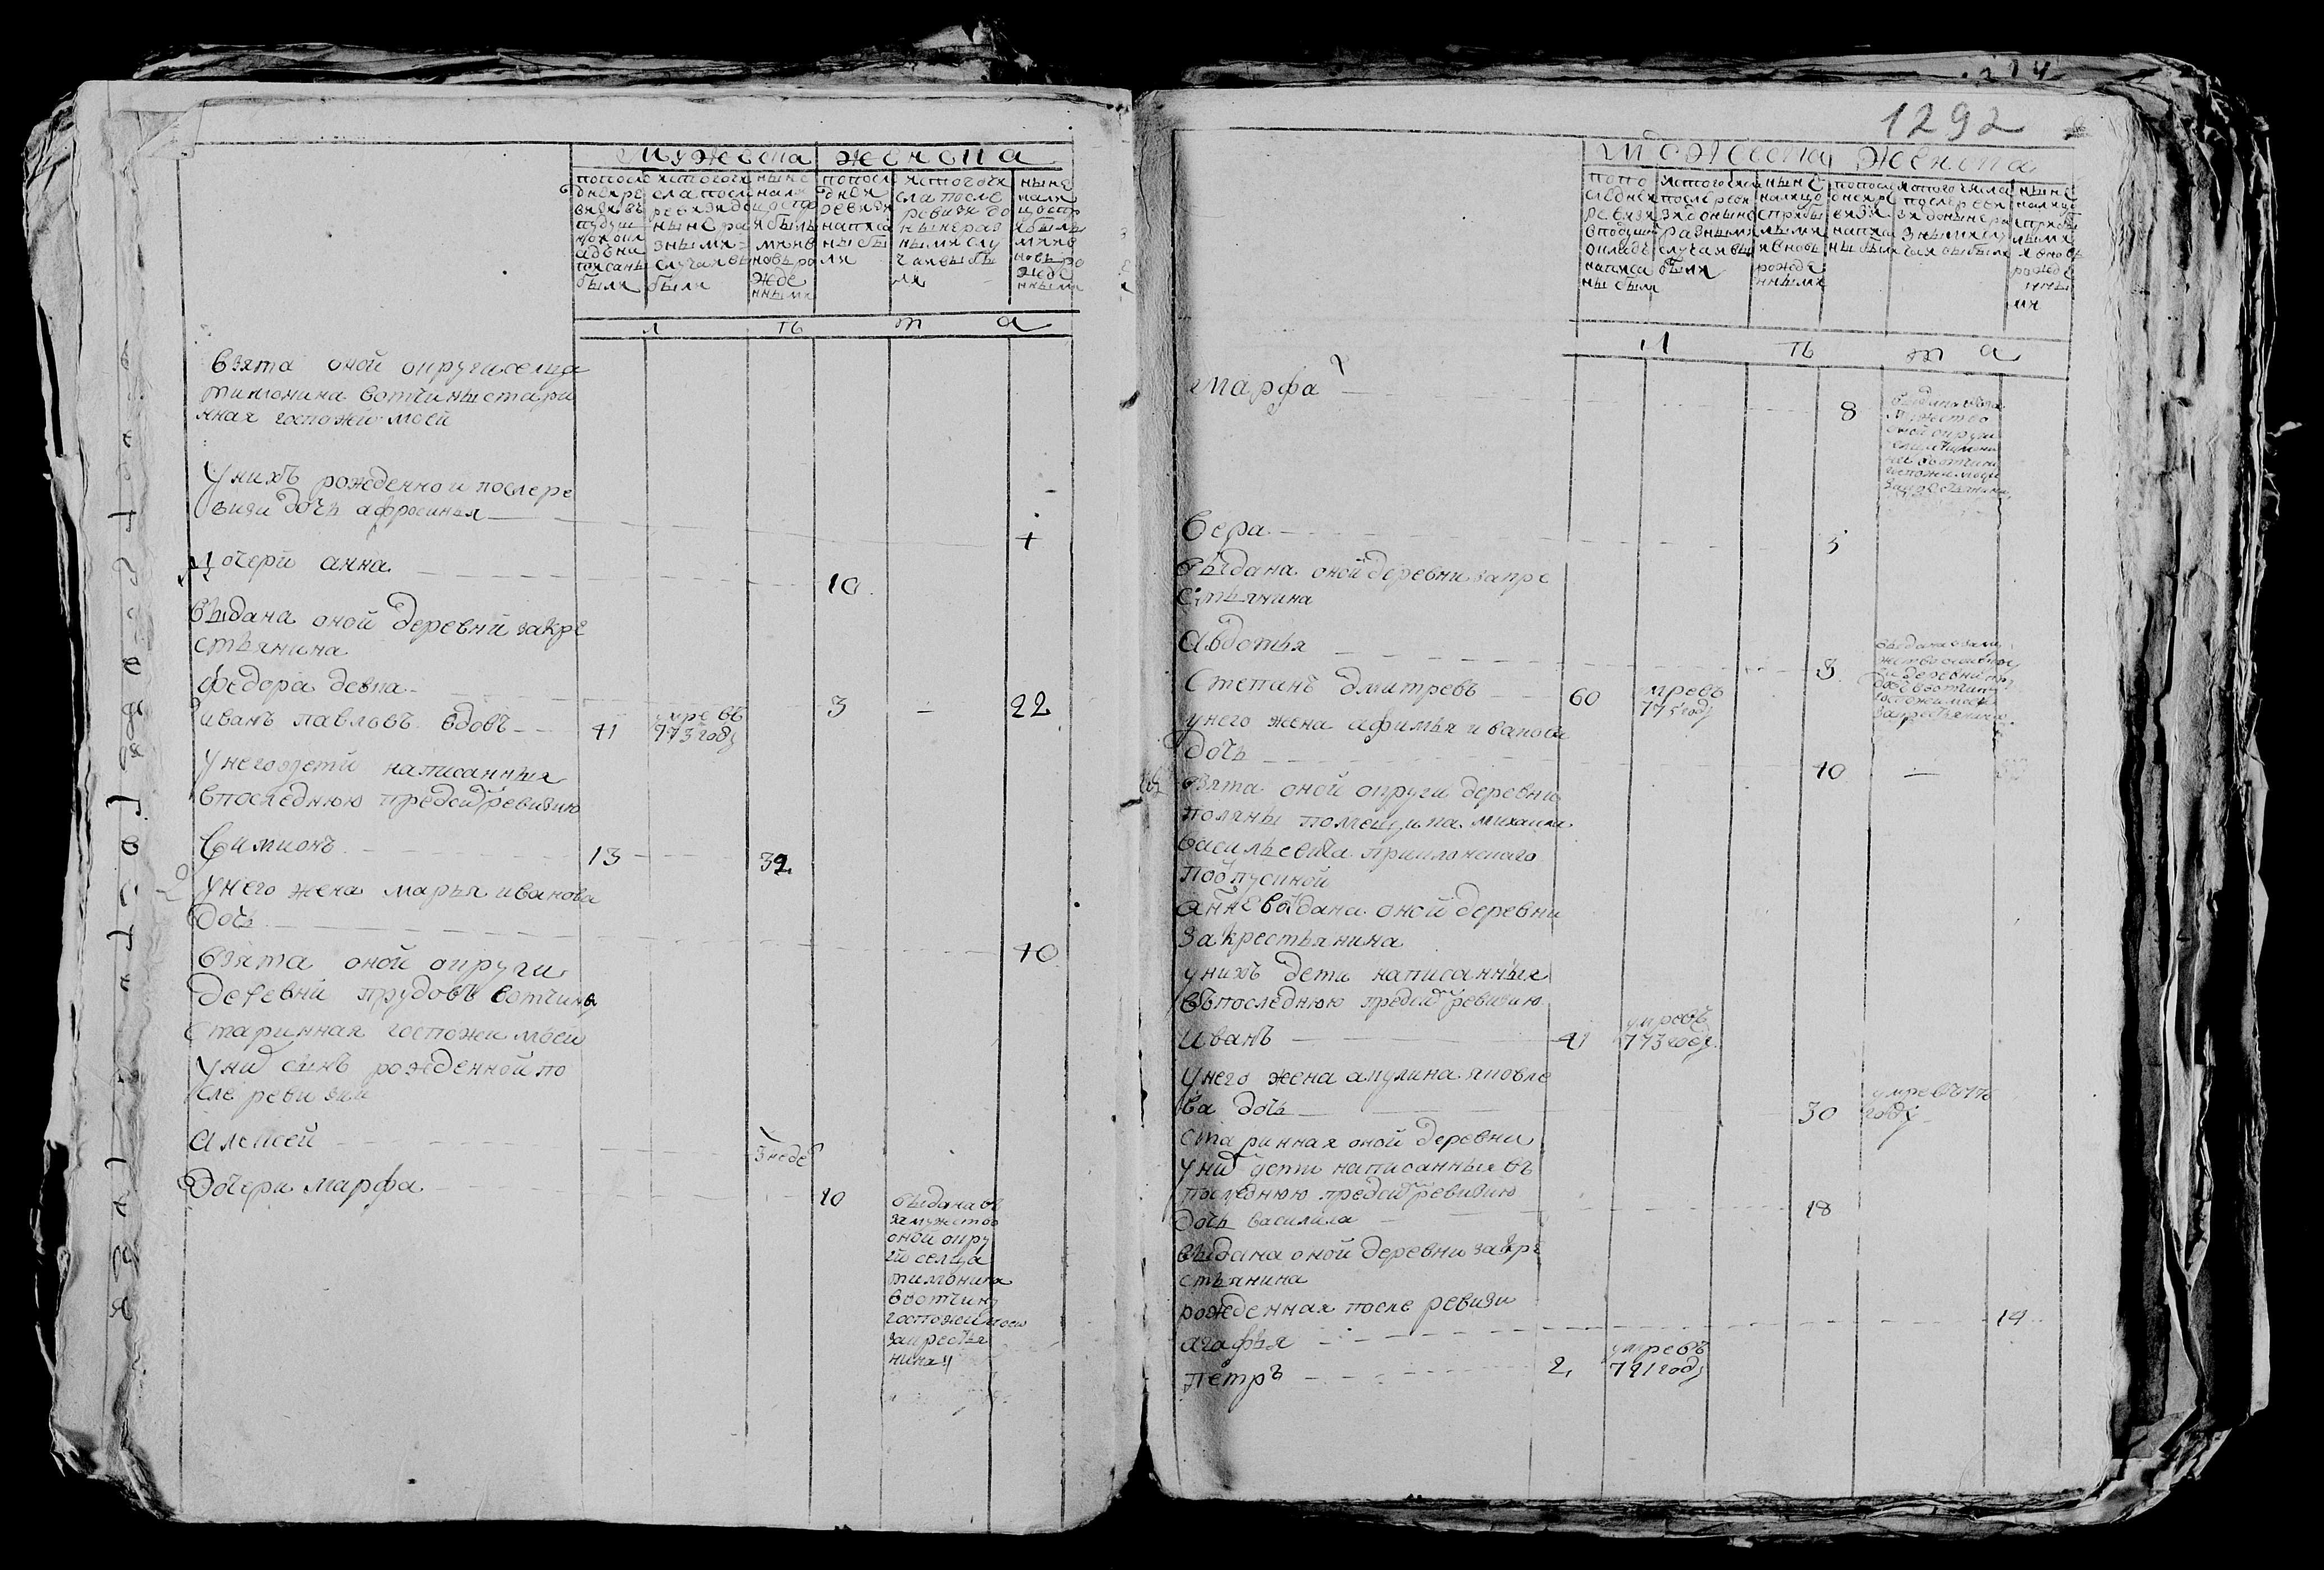 мужеска женска
попосле
днеи ре
визиивъ
подуш
номокл
адѣна
писаны
были
истогочи
сла посл
ревизидо
ныне ра
зными
случаивы
были
ныне
нали
цоспр
ибыль
мии в
новь ро
жде
нными
попосл
дней
ревизи
написа
ны бы
ли
истогочи
сла после
ревизи до
ныне раз
ными слу
чаивыбы
ли
ныне
нали
цоспр
ибыль
мии в
новь ро
жде
нными
л ѣ т а
взята оной округи селца
тимонина вотчины стари
нная госпожи моей
у нихъ рожденнои послере
визи дочь афросинья 1
дочери анна 10
выдана оной деревни закре
стьянина
федора девка 3 22
иванъ павловъ вдовъ 41 умре въ 773 годѣ
у него дети написанныя
впоследнюю предсиюревизию
Симионъ 13 32
у него жена марья иванова
дочь 40
взята оной округи
деревни прудовъ вотчины
старинная госпожи моей
у них сынъ рожденной по
сле ревизии
алексей 3 неде
дочери марфа 10
выдана въ
замужство
оной окру
ги селца
тимонина
ввотчину
госпожи моей
закрестья
нина
1292
мужеска женска
попо
следней
ревизи
вподуш
окладъ
написа
ны были
истогочисла
после ревизи
зидоныне
разными
случаивы
были
ныне
налицо
сприбы
лыми
и вновь
рожде
нными
попосл
еднеире
визи
написа
ны были
истогочисла
после реви
зи доныне ра
зными слу
чаи выбыли
ныне
налицо
сприбы
лыми
и вновь
рожде
нны
ми
л ѣ т а
марфа 8
выдана вза
мужство
оной округи
селца тимони
на ввотчину
госпожи моей
закрестьянина
вера 5
выдана оной деревни закре
стьянина
авдотья 3
Степанъ дмитревъ 60 умревъ 775 годѣ
у него жена афимья иванова
дочь 40
взята оной округи деревни
поляны помещика михаила
васильевича приклонскаго
анне выдана оной деревни
закрестьянина
у нихъ дети написанныя
въпоследнюю предсиюревизию
иванъ 41 умревъ 773 годѣ
у него жена акулина яковле
ва дочь 30
старинная оной деревни
у них дети написанныя въ
последнюю предсиюревизию
дочь василиса 18
выдана оной деревни закре
стьянина
рожденная после ревизи
агафья 14
петръ 2 умревъ 781 годѣ